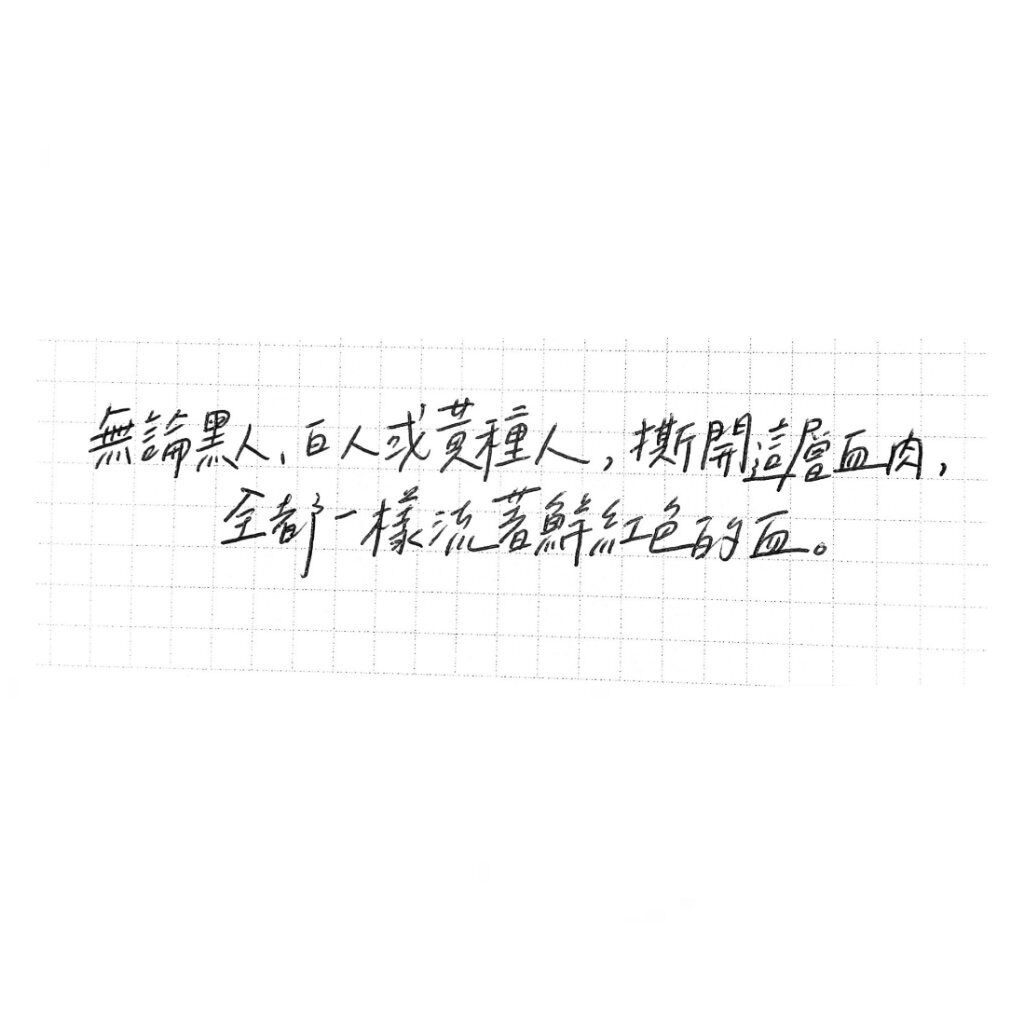 無論黑人、白人或黃種人，撕開這層血肉，
全都一樣流著鮮紅色的血。